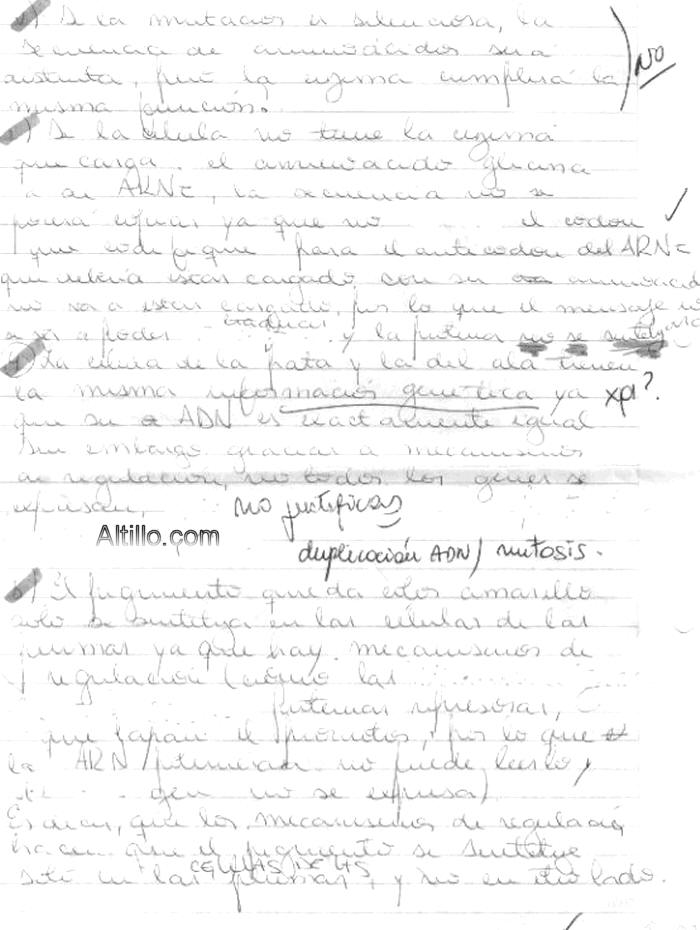 Si la mutación es silenciosa, la
secuencia de aminoácidos será
distinta, pero la enzima cumplirá la
misma función.
NO
Si la célula no tiene la enzima
que carga el aminoácido glicina
a su ARNt, la secuencia no se
podrá copiar ya que no el codon
que codifique para el anticodon del ARNt
que debería estar cargado con su aminoacid
no va a estar cargado, por lo que el mensaje no
se va a poder traducir y la proteina no se
La célula de la pata y la del ala tienen
la misma información genética ya
xq?
que su ADN es exactamente igual
Sin embargo gracias a mecanismos
de regulación, no todos los genes se
expresan.
no justificas
Altillo.com
duplicación ADN / mitosis.
El pigmento que da color amarillo
solo se sintetiza en las células de las
plumas ya que hay mecanismos de
regulación (como las
proteinas represoras,
que tapan el promotor, por lo que
la ARN polimerasa no puede leerlo y
gen no se expresa)
Es decir, que los mecanismos de regulació
hacen que el pigmento se sintetize
CELULAS DE LAS
solo en las plumas, y no en otro lado.